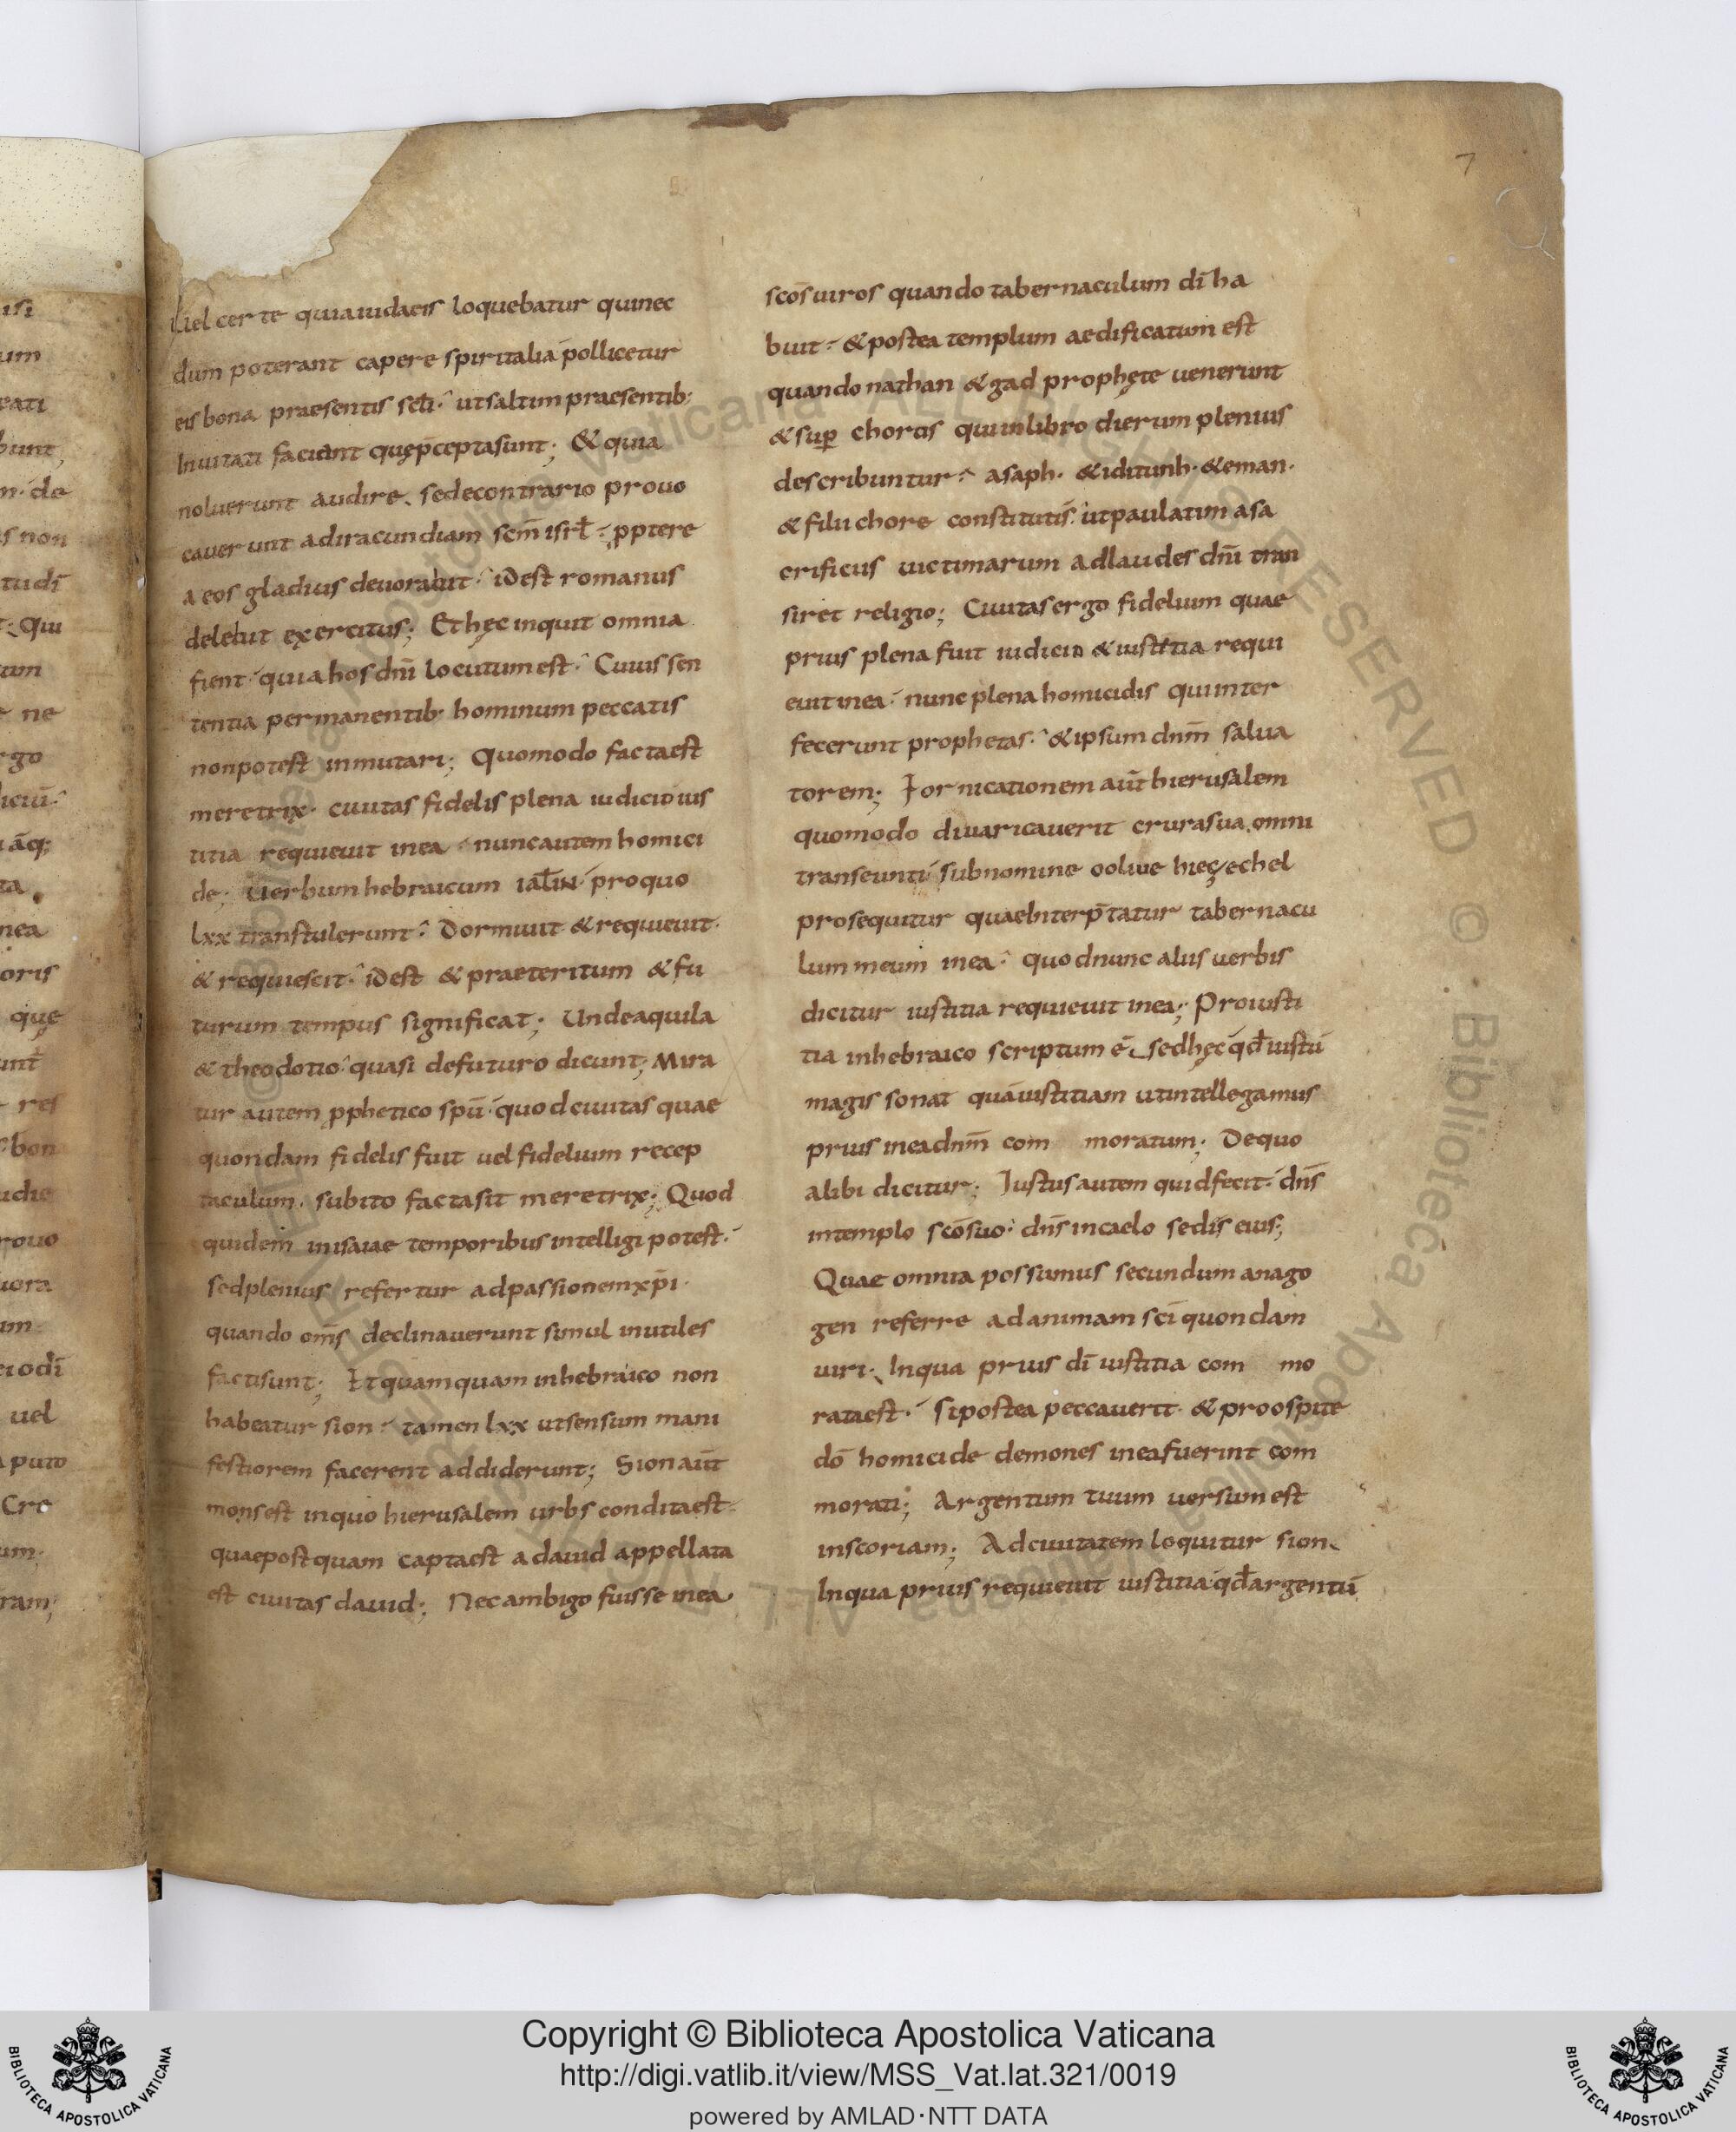 7
Uel certe quia iudaeis loquebatur qui nec
dum poterant capere spiritalia pollicetur
eis bona praesentis scłi· ut saltim praesentib;
Inuitati faciant quę p̄cepta sunt; & quia
noluerunt audire, sed e contrario prouo
cauerunt ad iracundiam scm̄ isrł· ꝓptere
a eos gladius deuorabit· idest romanus
delebit exercitus; Et hęc inquit omnia
fient· quia hos dn̄i locutum est· Cuius sen
tentia permanentib· hominum peccatis
non potest inmutari; Quomodo facta est
meretrix· ciuitas fidelis plena iudicio ius
titia requieuit in ea· nunc autem homici
de; Uerbum hebraicum ialin· pro quo
lxx transtulerunt· Dormiuit & requieuit·
& requiescit· idest & praeteritum & fu
turum tempus significat; Unde aquila
& theodotio· quasi de futuro dicunt; Mira
tur autem ꝓphetico spū· quod ciuitas quae
quondam fidelis fuit uel fidelium recep
taculum· subito facta sit meretrix; Quod
quidem in isaiae temporibus intelligi potest·
sed plenius refertur ad passionem xp̄i·
quando om̄s declinauerunt simul inutiles
facti sunt; Et quamquam in hebraico non
habeatur sion· tamen lxx ut sensum mani
festiorem facerent addiderunt; Sion aūt
mons est in quo hierusalem urbs condita est·
quae postquam capta est a dauid appellata
est ciuitas dauid; Nec ambigo fuisse in ea
scōs uiros quando tabernaculum dī ha
buit· & postea templum aedificatum est
quando nathan & gad prophęte uenerunt
& suꝑ choros qui in libro dierum plenius
describuntur· asaph· & iditunh· & eman·
& filii chore constitutis· ut paulatim a sa
crificiis uictimarum ad laudes dn̄i tran
siret religio; Ciuitas ergo fidelium quae
prius plena fuit iudicio & iustitia requi
euit in ea· nunc plena homicidis qui inter
fecerunt prophetas· & ipsum dnm̄ salua
torem; Fornicationem aūt hierusalem
quomodo diuaricauerit crura sua omni
transeunti· sub nomine oolive hięzechel
prosequitur quae Interp̄tatur tabernacu
lum meum in ea· quod nunc aliis uerbis
dicitur iustitia requieuit in ea; Pro iusti
tia in hebraico scriptum ē· sed hęc qd̄ iustū
magis sonat quā iustitiam ut intellegamus
prius in ea dnm̄ com moratum; De quo
alibi dicitur; Iustus autem quid fecit· dn̄s
in templo scō suo· dn̄s in caelo sedis eius;
Quae omnia possumus secundum anago
gen referre ad animam scī quondam
uiri· In qua prius dī iustitia com mo
rata est· si postea peccauerit & pro ospite
dō homicide demones in ea fuerint com
morati; Argentum tuum uersum est
in scoriam; Ad ciuitatem loquitur sion
In qua prius requieuit iustitia qd̄ argentū
Copyright © Biblioteca Apostolica Vaticana
http://digi.vatlib.it/view/MSS_Vat.lat.321/0019
powered by AMLAD·NTT DATA
BIBLIOTECA APOSTOLICA VATICANA
BIBLIOTECA APOSTOLICA VATICANA